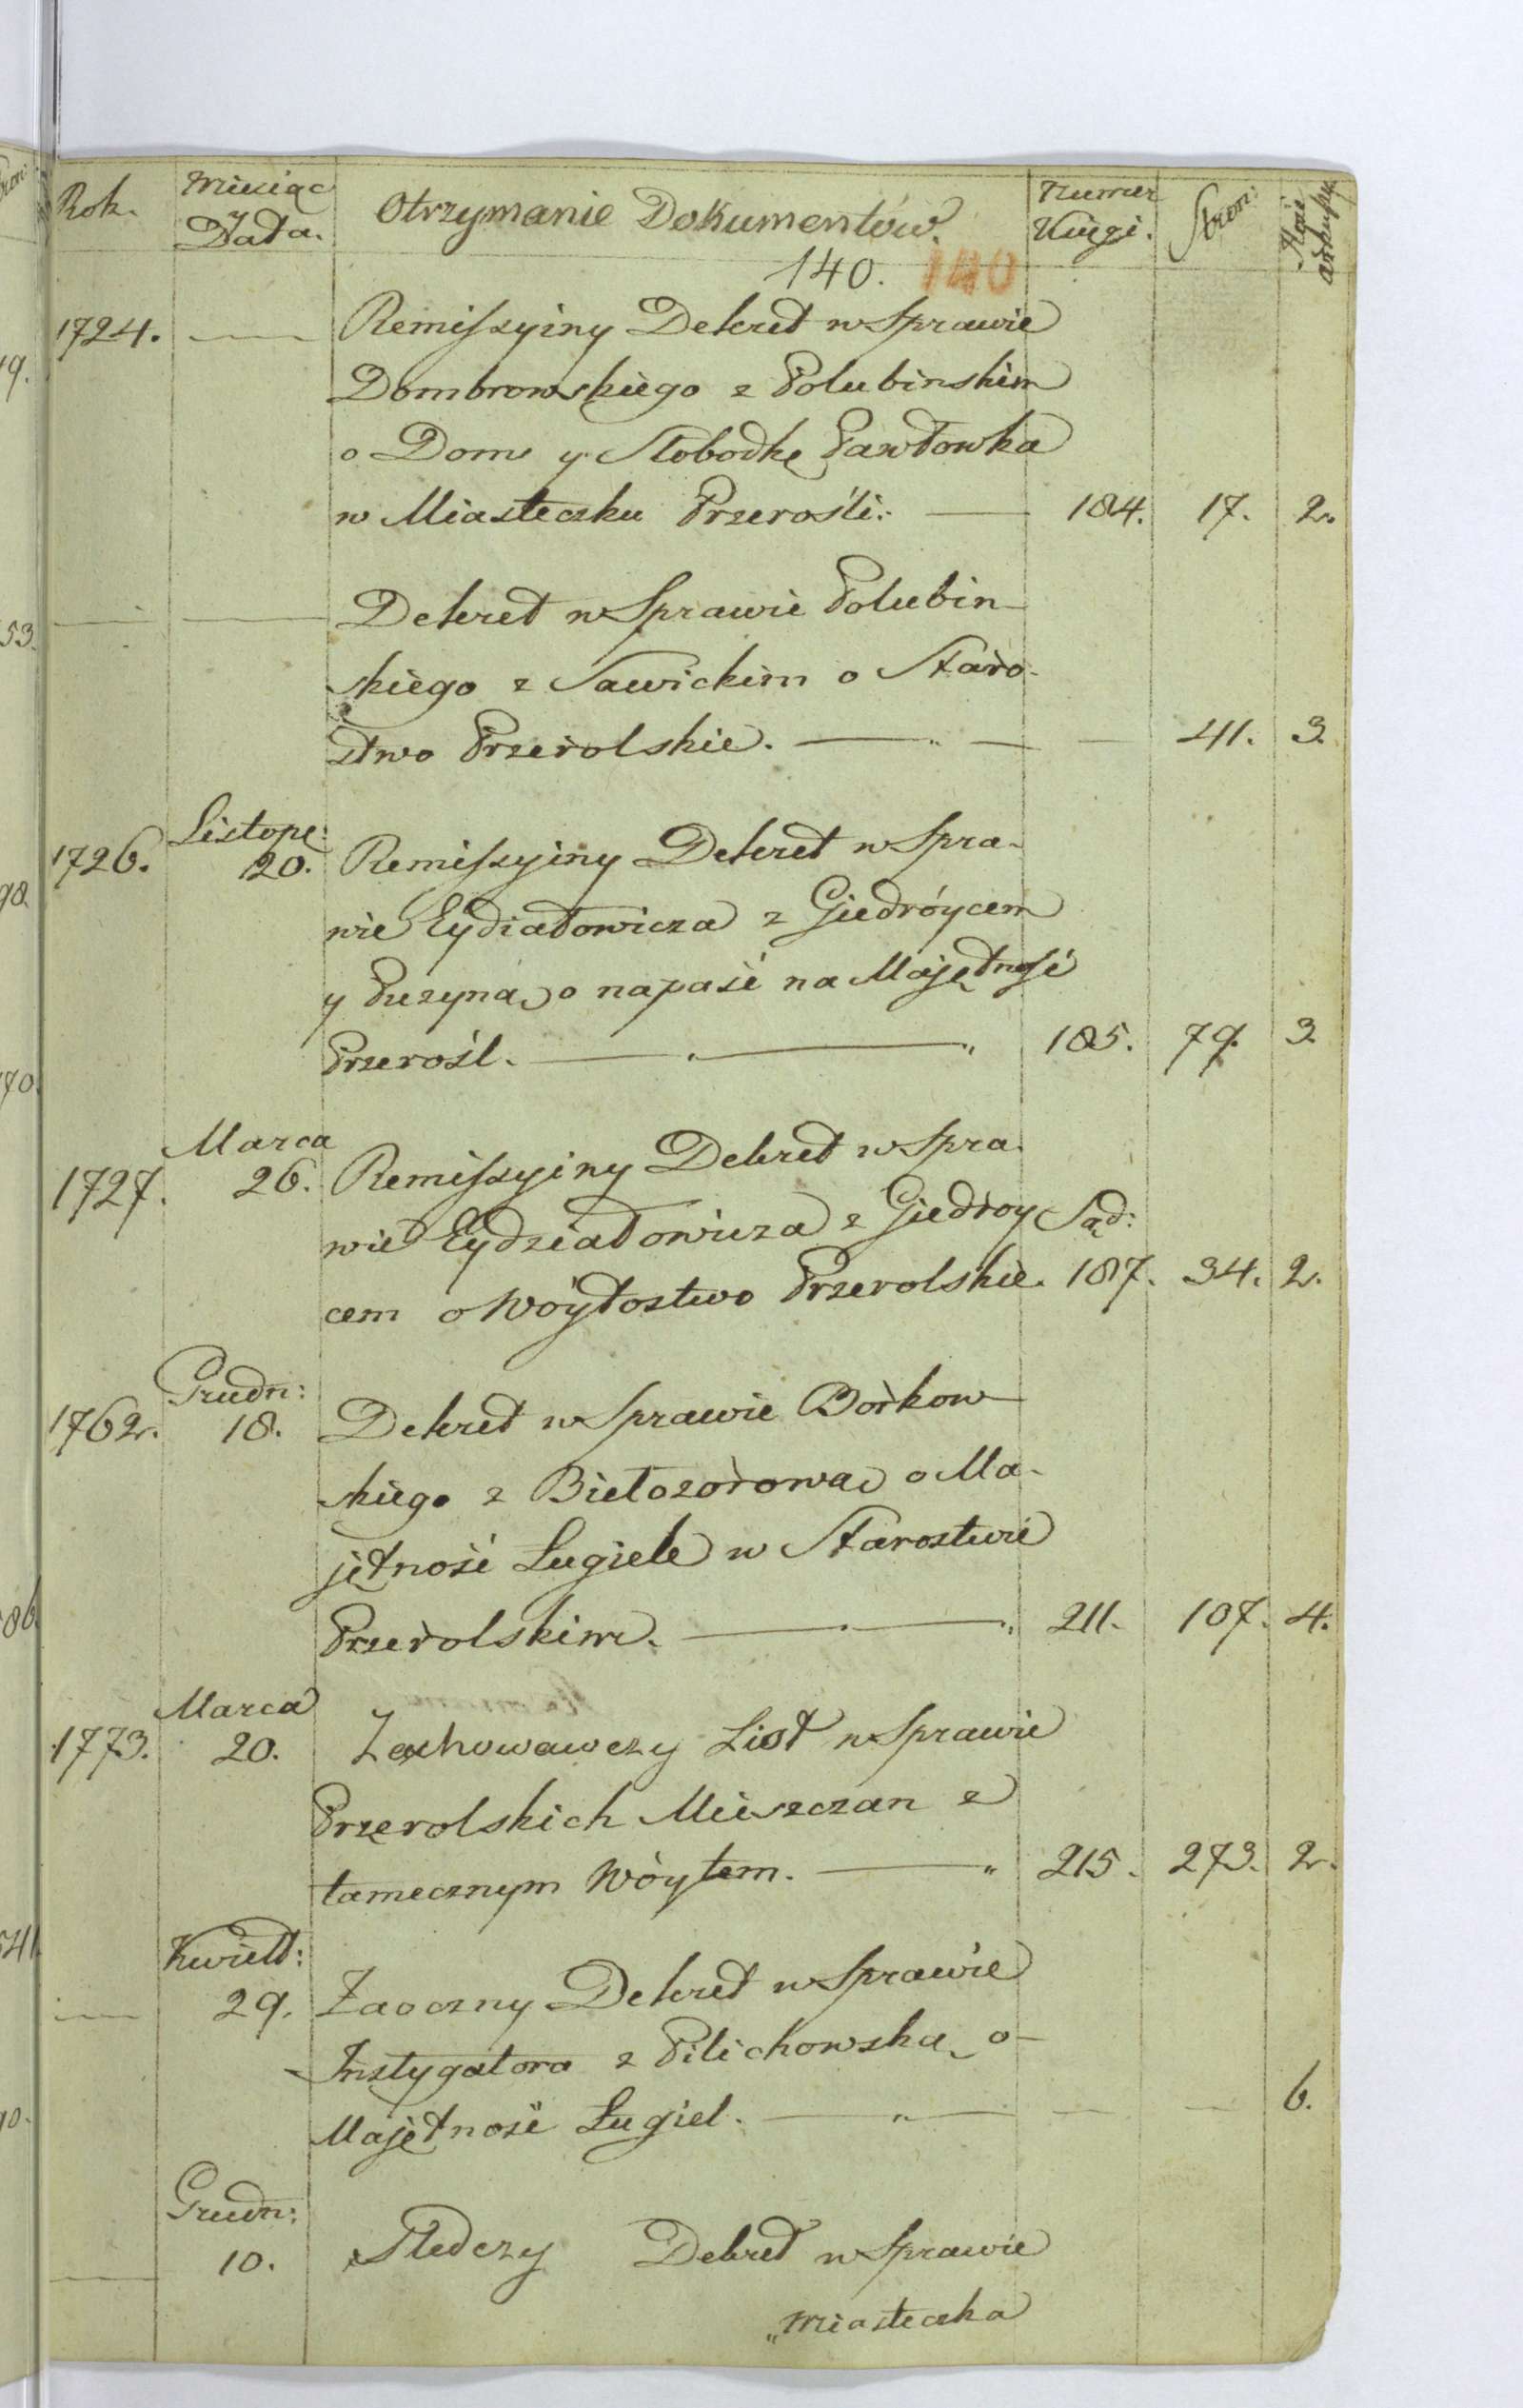 Rok. Miesiąc Otrzymanie Dokumentów. Numer Stron: Ilość
y Data. Księgi. arkuszy
140. 140
1724. — Remissyiny Dekret w Sprawie
Dombrowskiego z Połubinskim
o Dom y Słobodkę Pawłowka
w Miasteczku Przerośli. — 184. 17. 2.
— — Dekret w Sprawie Połubin-
skiego z Sawickim o Staro-
stwo Przerolskie. — „ — — 41. 3.
Listopa:
1726. 20. Remissyiny Dekret w Spra-
wie Eydiatowicza z Giedróycem
y Puzyną o napaść na Majętność
Przerośl. — „ — „ 185. 79. 3.
Marca
1727. 26. Remissyiny Dekret w Spra-
wie Eydziatowicza z Giedroy Sąd:
cem o Wóytostwo Przerolskie. 187. 34. 2.
Grudn:
1762. 18. Dekret w Sprawie Borkow-
skiego z Białozorową o Ma-
jętność Ługiele w Starostwie
Przerolskim. — „ 211. 107. 4.
Marca
1773. 20. Zachowawczy List w Sprawie
Przerolskich Mieszczan z
tamecznym Wóytem. — „ 215. 273. 2.
Kwiet:
— 29. Zaoczny Dekret w Sprawie
Instygatora z Pilichowską o
Majętność Ługiel. — „ — — — 6.
Grudn:
— 10. Śledczy Dekret w Sprawie
„ miasteczka